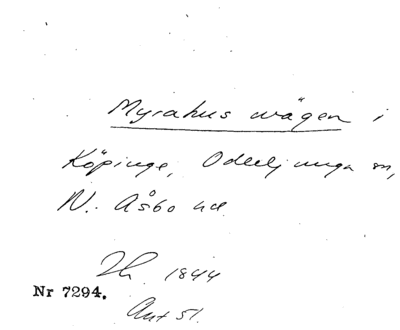 Myrahus vägen i
Köpinge, Oderljunga sn,
N. Åsbo hd.
Th. 1844
Nr 7294.
Ant 51.